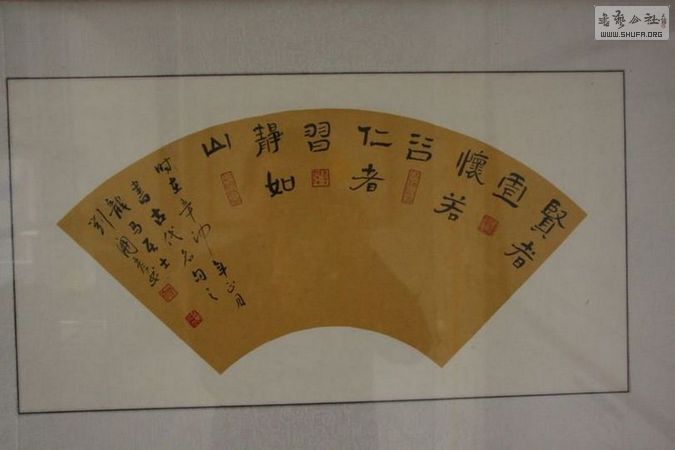 賢者
虛
懷若
谷
仁者
習
靜如
山
时在辛卯年正月
書古代名句之
龍马居士
書藝公社
WWW.SHUFA.ORG